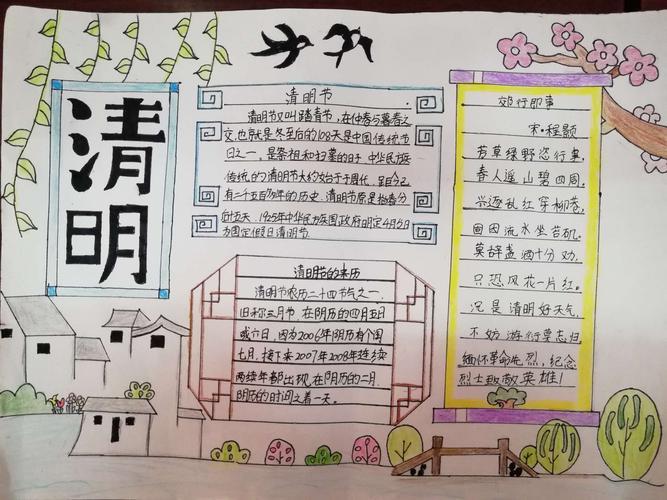 清明
清明节
清明节又叫踏青节,在仲春与暮春之
交,也就是冬至后的108天是中国传统节
日之一,是祭祖和扫墓的日子 中华民族
传统的清明节大约始于于周代,至今已
有二千五百多年的历史,清明节原是指春分
后十五天,1935年中华民族国政府明定4月5日
为国定假日清明节.
清明节的来历
清明节农历二十四节气之一.
旧称三月节,在阴历的四月五日
或六日,因为2006年阴历有个闰
七月,接下来2007年2008年连续
两续年都出现,在阴历的二月.
阴历的时间之着一天。
郊行即事
宋·程颢
芳草绿野恣行事,
春人遥山碧四周,
兴逐乱红穿柳巷,
困因流水坐苔矶.
莫辞盏酒十分劝,
只恐风花一片红.
况是清明好天气,
不妨游衍莫志归.
缅怀革命先烈,纪念
烈士致敬英雄!